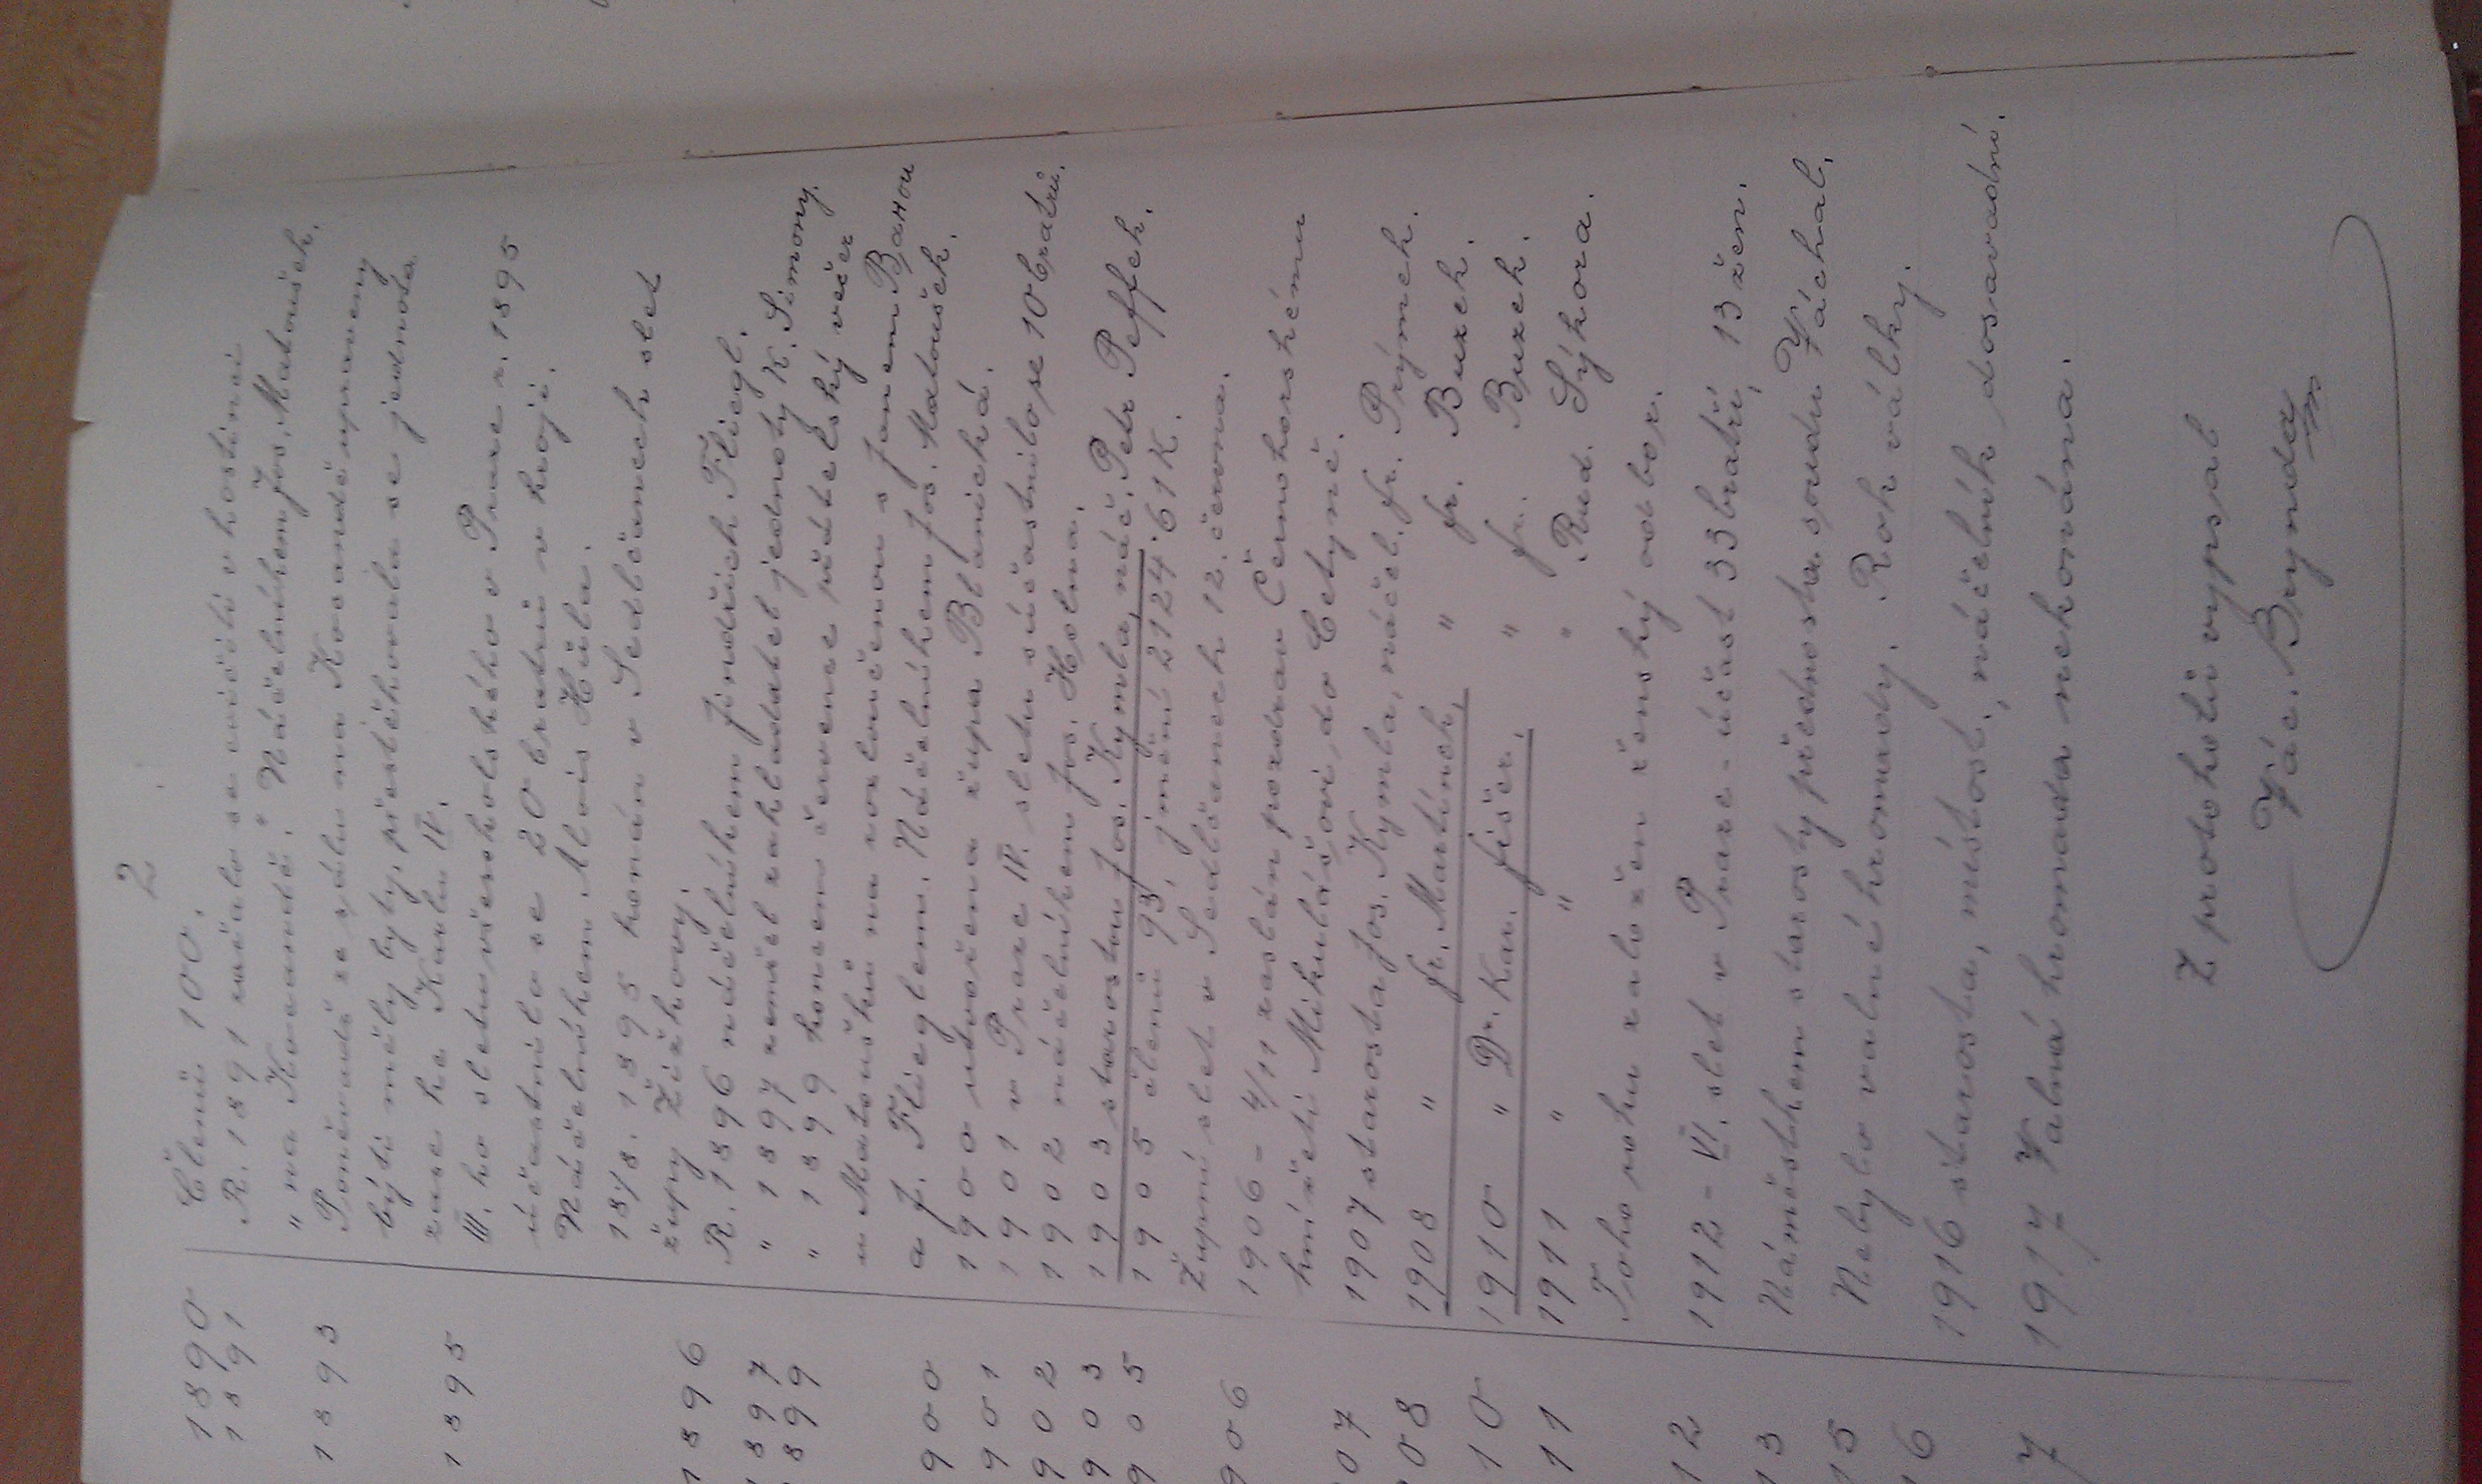 2
1890 Členů 100.
1891 R. 1891 začalo se cvičiti v hostinci
"na Kovandě." Náčelníkem Jos. Matoušek.
1893 Poněvadž ze sálu na Kovandě upraveny
býti měly byty, přestěhovala se jednota
zase ke Karlu IV.
1895 III. ho sletu všesokolského v Praze r. 1895
účastnilo se 20 bratrů v kroji.
Náčelníkem Alois Hůla.
18/8. 1895 konán v Sedlčanech slet
župy Žižkovy.
1896 R. 1896 náčelníkem Jindřich Fliegl.
1897 " 1897 zemřel zakladatel jednoty K. Simony.
1899 " 1899 koncem července přátelský večer
u Matoušků na rozloučenou s Janem Vaňou
a J. Flieglem. Náčelníkem Jos. Matoušek.
900 1900 utvořena župa Blanická.
901 1901 v Praze IV. sletu súčastnilo se 10 bratrů.
902 1902 náčelníkem Jos. Holma.
903 1903 starostou Jos. Kymla, náč. Petr Peffek.
905 1905 členů 93, jmění 2124·61 K.
Župní slet v Sedlčanech 12. června.
906 1906 – 4/11 zaslán pozdrav Černohorskému
knížeti Mikulášovi do Cetyně.
07 1907 starosta Jos. Kymla, náčel. Fr. Prýmek.
08 1908 " Fr. Martínek, " Fr. Buzek.
10 1910 " Dr. Kar. Fišer, " Fr. Buzek.
11 1911 " " " Rud. Sýkora.
Toho roku založen ženský odbor.
12 1912 – VI. slet v Praze – účast 33 bratří, 13 žen.
13 Náměstkem starosty přednosta soudu Váchal.
15 Nebylo valné hromady. Rok války.
16 1916 starosta, místost., náčelník dosavadní.
7 1917 Valná hromada nekonána.
Z protokolů vypsal
Vác. Brynda